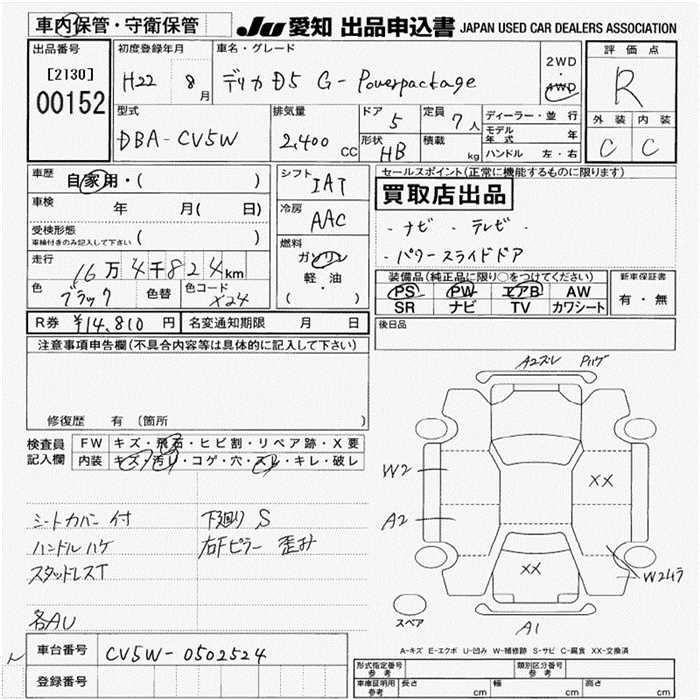 車内保管・守衛保管
JU 愛知 出品申込書 JAPAN USED CAR DEALERS ASSOCIATION
出品番号
[2130]
00152
初度登録年月
H22 8月
車名・グレード
デリカD5 G-Powerpackage
2WD
・
4WD
評価点
R
外装 内装
C C
型式
DBA-CV5W
排気量
2,400 CC
ドア
5
定員
7人
形状
HB
積載
kg
ディーラー・並行
モデル年式 年
ハンドル 左・右
車歴
自家用・( )
車検
年 月( 日)
受検形態
車検付きのみ記入して下さい ( )
走行
16万4千824km
色
ブラック
色替
色コード
X24
シフト
IAT
冷房
AAC
燃料
ガソリン
軽・油
( )
セールスポイント(正常に機能するものに限ります)
買取店出品
・ナビ ・テレビ・
・パワースライドドア
装備品(純正品に限り○をつけてください)
PS PW エアB AW
SR ナビ TV カワシート
新車保証書
有・無
R券 ¥14,810円
名変通知期限 月 日
後日品
注意事項申告欄(不具合内容等は具体的に記入して下さい)
修復歴 有 (箇所 )
検査員記入欄
FW キズ・飛石・ヒビ割・リペア跡・X要
内装 キズ・汚れ・コゲ・穴・スレ・キレ・破レ
シートカバー付
ハンドルハゲ
スタッドレスT
各AU
下廻りS
右Fピラー歪み
A2ズレ Pハゲ
W2
A2
XX
XX
W2ムラ
A1
スペア
A-キズ E-エクボ U-凹み W-補修跡 S-サビ C-腐食 XX-交換済
車台番号
CV5W-0502524
登録番号
形式指定番号
参考
類別区分番号
参考
車庫証明用
参考
長さ cm
幅 cm
高さ cm